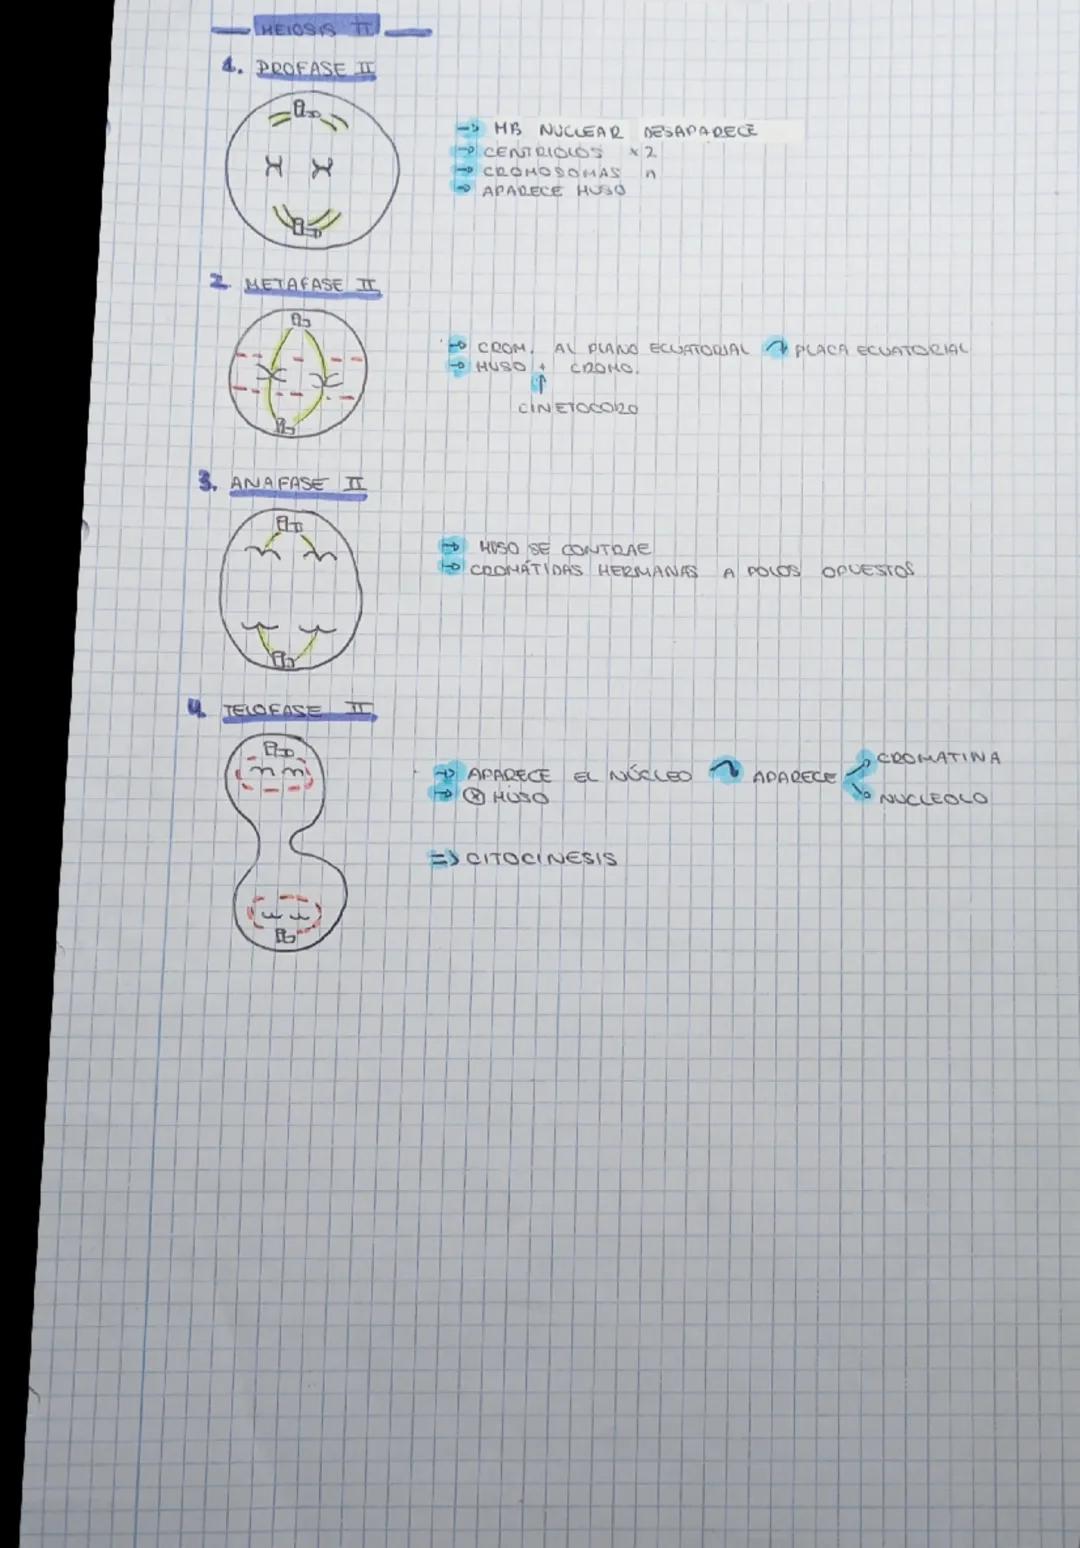 MEIOSIS II
1. PROFASE II
→ MB NUCLEAR DESAPARECE
→ CENTRIOLOS x2
→ CROMOSOMAS n
→ APARECE HUSO
2. METAFASE II
→ CROM. AL PLANO ECUATORIAL ↷ PLACA ECUATORIAL
→ HUSO + CROMO.
↑
CINETOCORO
3. ANAFASE II
→ HUSO SE CONTRAE
→ CROMÁTIDAS HERMANAS A POLOS OPUESTOS
4. TELOFASE II
→ APARECE EL NÚCLEO ↷ APARECE
CROMATINA
NUCLEOLO
→ ⓧ HUSO
=> CITOCINESIS